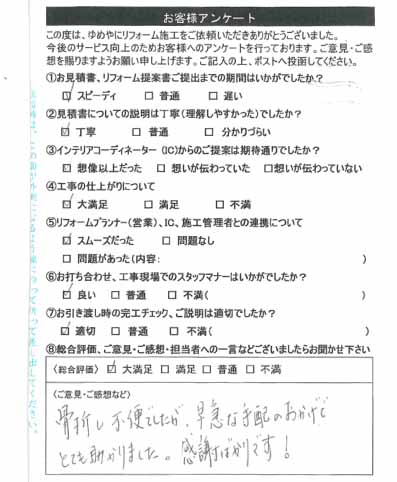 お客様アンケート
この度は、ゆめやにリフォーム施工をご依頼いただきありがとうございました。
今後のサービス向上のためお客様へのアンケートを行っております。ご意見・ご感
想を賜りますようお願い申し上げます。ご記入の上、ポストへ投函してください。
①お見積書、リフォーム提案書ご提出までの期間はいかがでしたか?
☑ スピーディ □ 普通 □ 遅い
②見積書についての説明は丁寧(理解しやすかった)でしたか?
☑ 丁寧 □ 普通 □ 分かりづらい
③インテリアコーディネーター(IC)からのご提案は期待通りでしたか?
☑ 想像以上だった □ 想いが伝わっていた □想いが伝わっていない
④工事の仕上がりについて
☑ 大満足 □ 満足 □ 不満
⑤リフォームプランナー(営業)、IC、施工管理者との連携について
☑ スムーズだった □ 問題なし
□ 問題があった(内容: )
⑥お打ち合わせ、工事現場でのスタッフマナーはいかがでしたか?
☑ 良い □ 普通 □ 不満( )
⑦お引き渡し時の完工チェック、ご説明は適切でしたか?
☑ 適切 □ 普通 □ 不満( )
⑧総合評価、ご意見・ご感想・担当者への一言などございましたらお聞かせ下さい
〈総合評価〉 ☑ 大満足 □ 満足 □ 普通 □ 不満
〈ご意見・ご感想など〉
骨折し不便でしたが、早急な手配のおかげで
とても助かりました。感謝ばかりです!